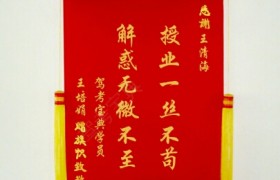 感谢王清海
授业一丝不苟
解惑无微不至
驾考宝典学员
王培娟